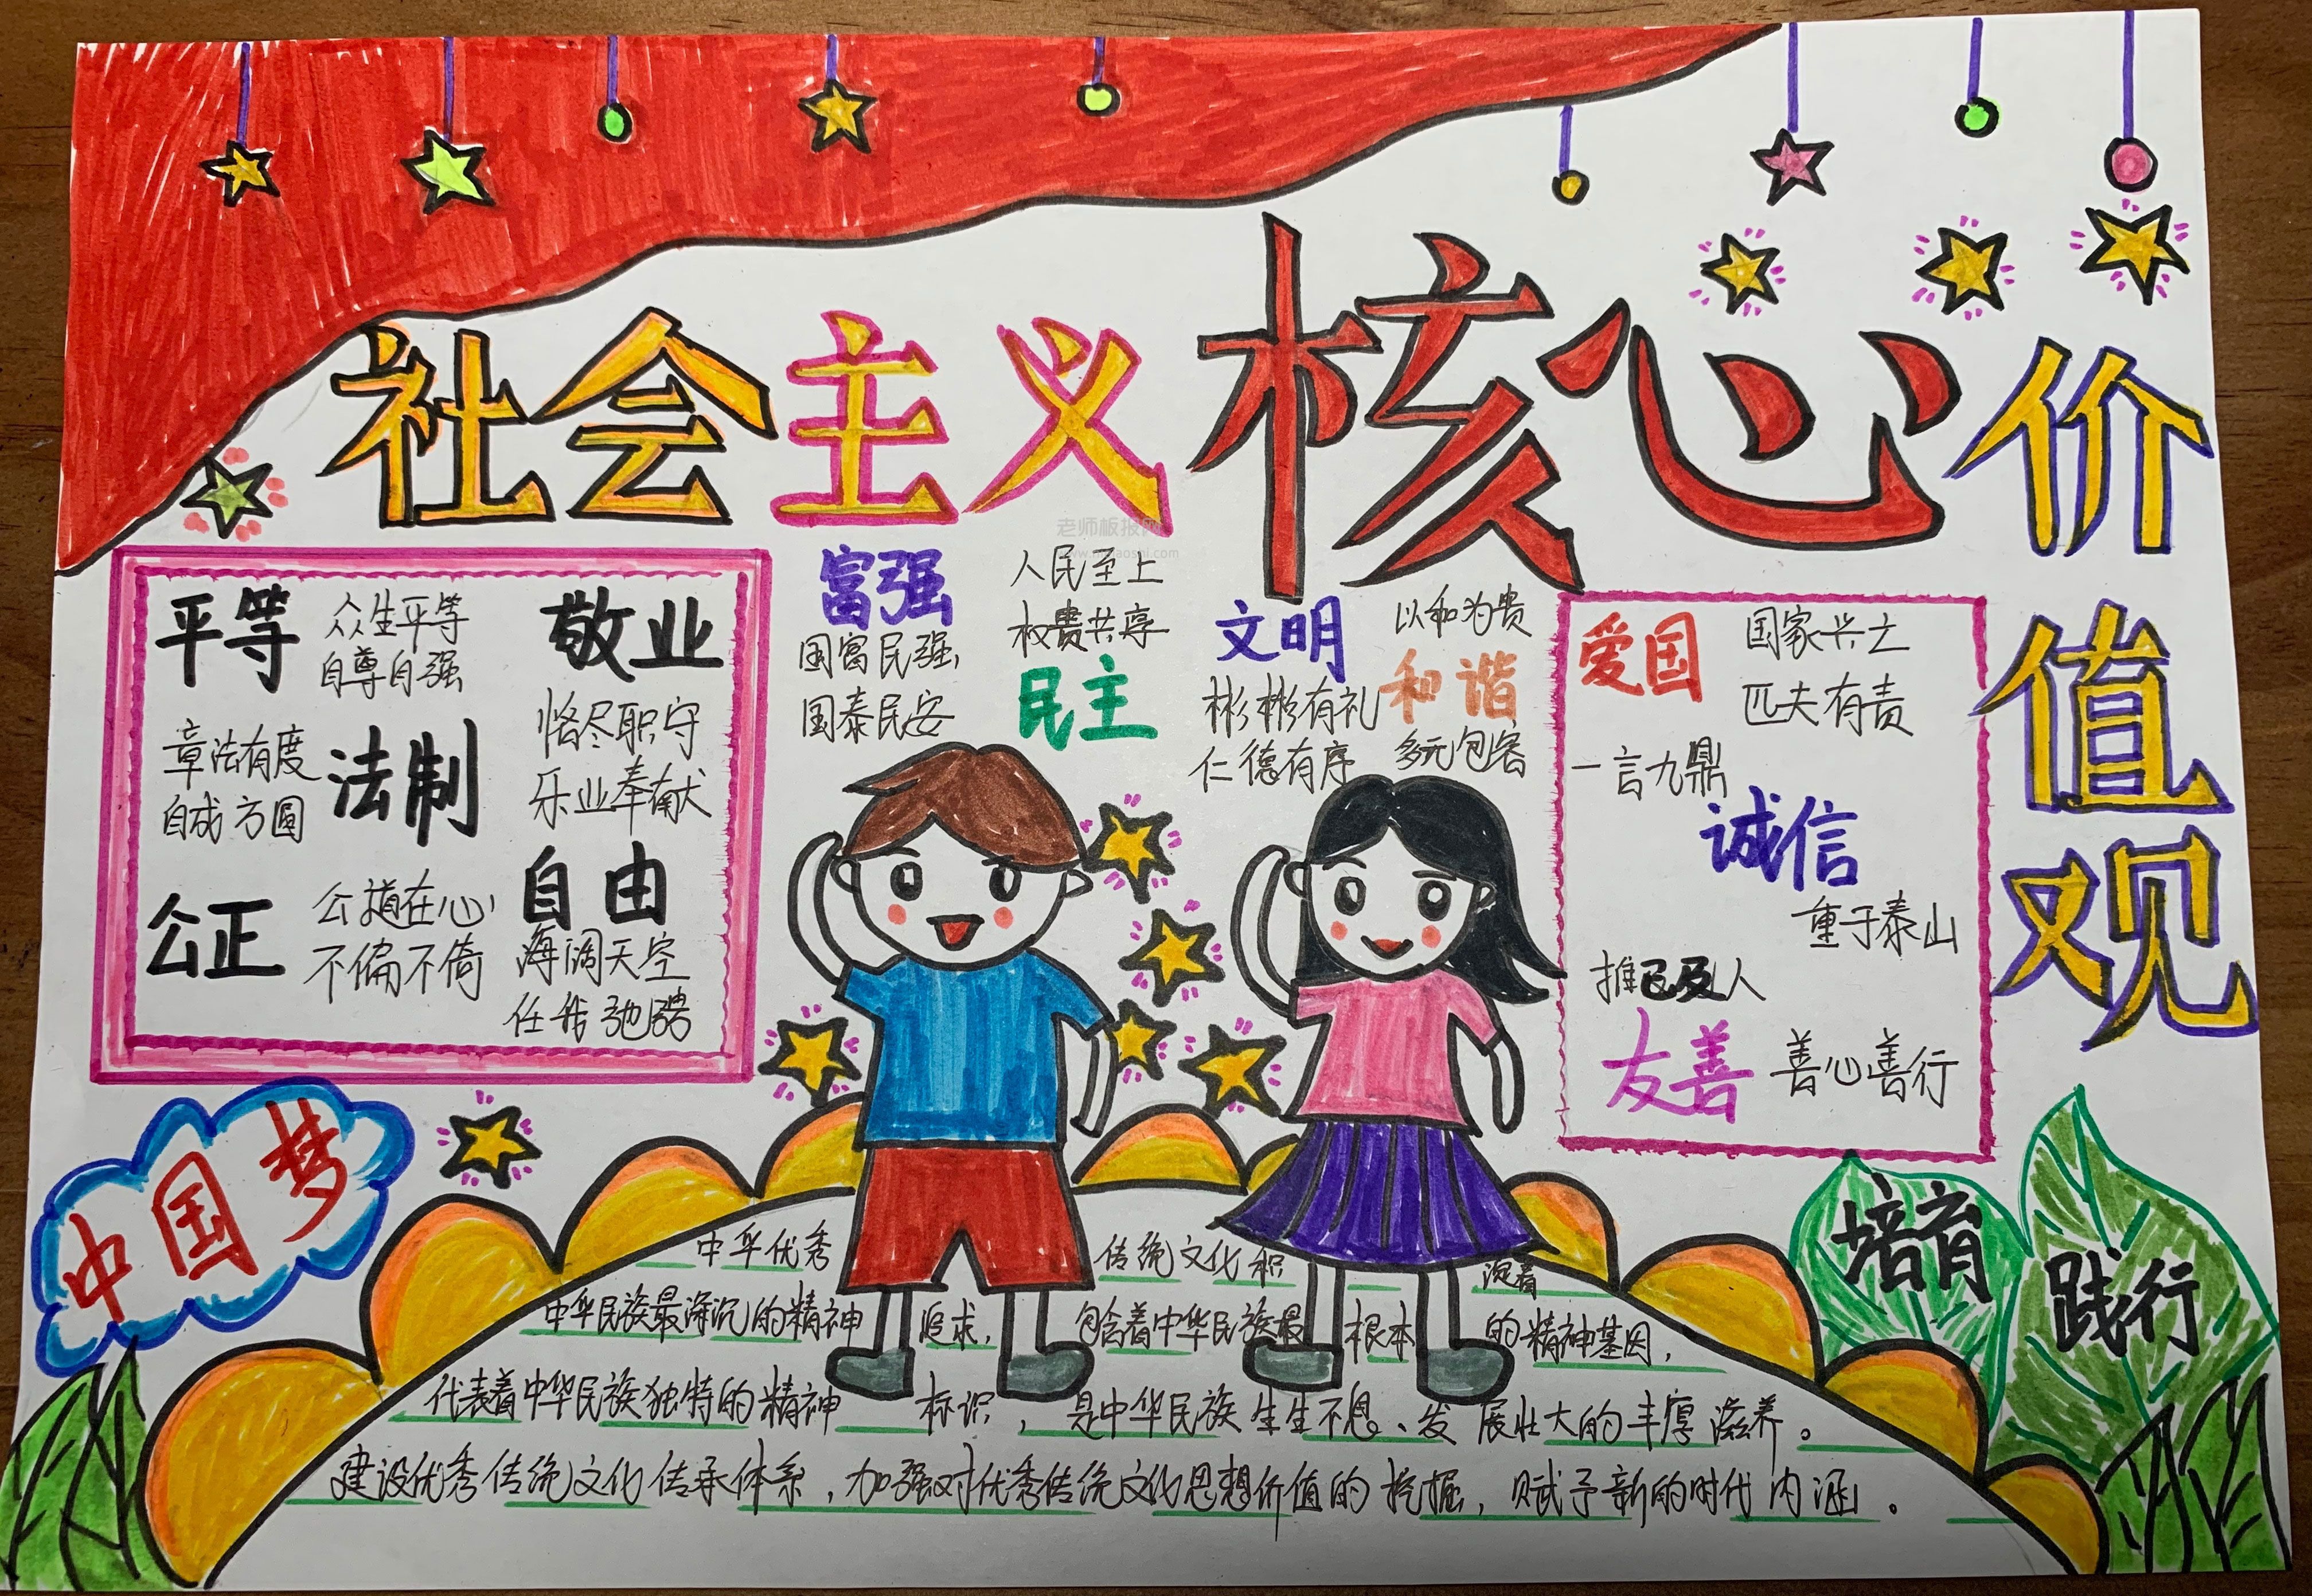 社会主义核心价值观
老师板报网
平等
众生平等
自尊自强
敬业
恪尽职守
乐业奉献
章法有度
自成方圆
法制
公正
公道在心
不偏不倚
自由
海阔天空
任我驰骋
富强
国富民强,
国泰民安
人民至上
权贵共享
民主
文明
彬彬有礼
仁德有序
以和为贵
和谐
多元包容
爱国
国家兴亡
匹夫有责
一言九鼎
诚信
重于泰山
推己及人
友善
善心善行
中国梦
培育
践行
中华优秀传统文化积淀着
中华民族最深沉的精神追求,包含着中华民族最根本的精神基因,
代表着中华民族独特的精神标识,是中华民族生生不息、发展壮大的丰厚滋养。
建设优秀传统文化传承体系,加强对优秀传统文化思想价值的挖掘,赋予新的时代内涵。